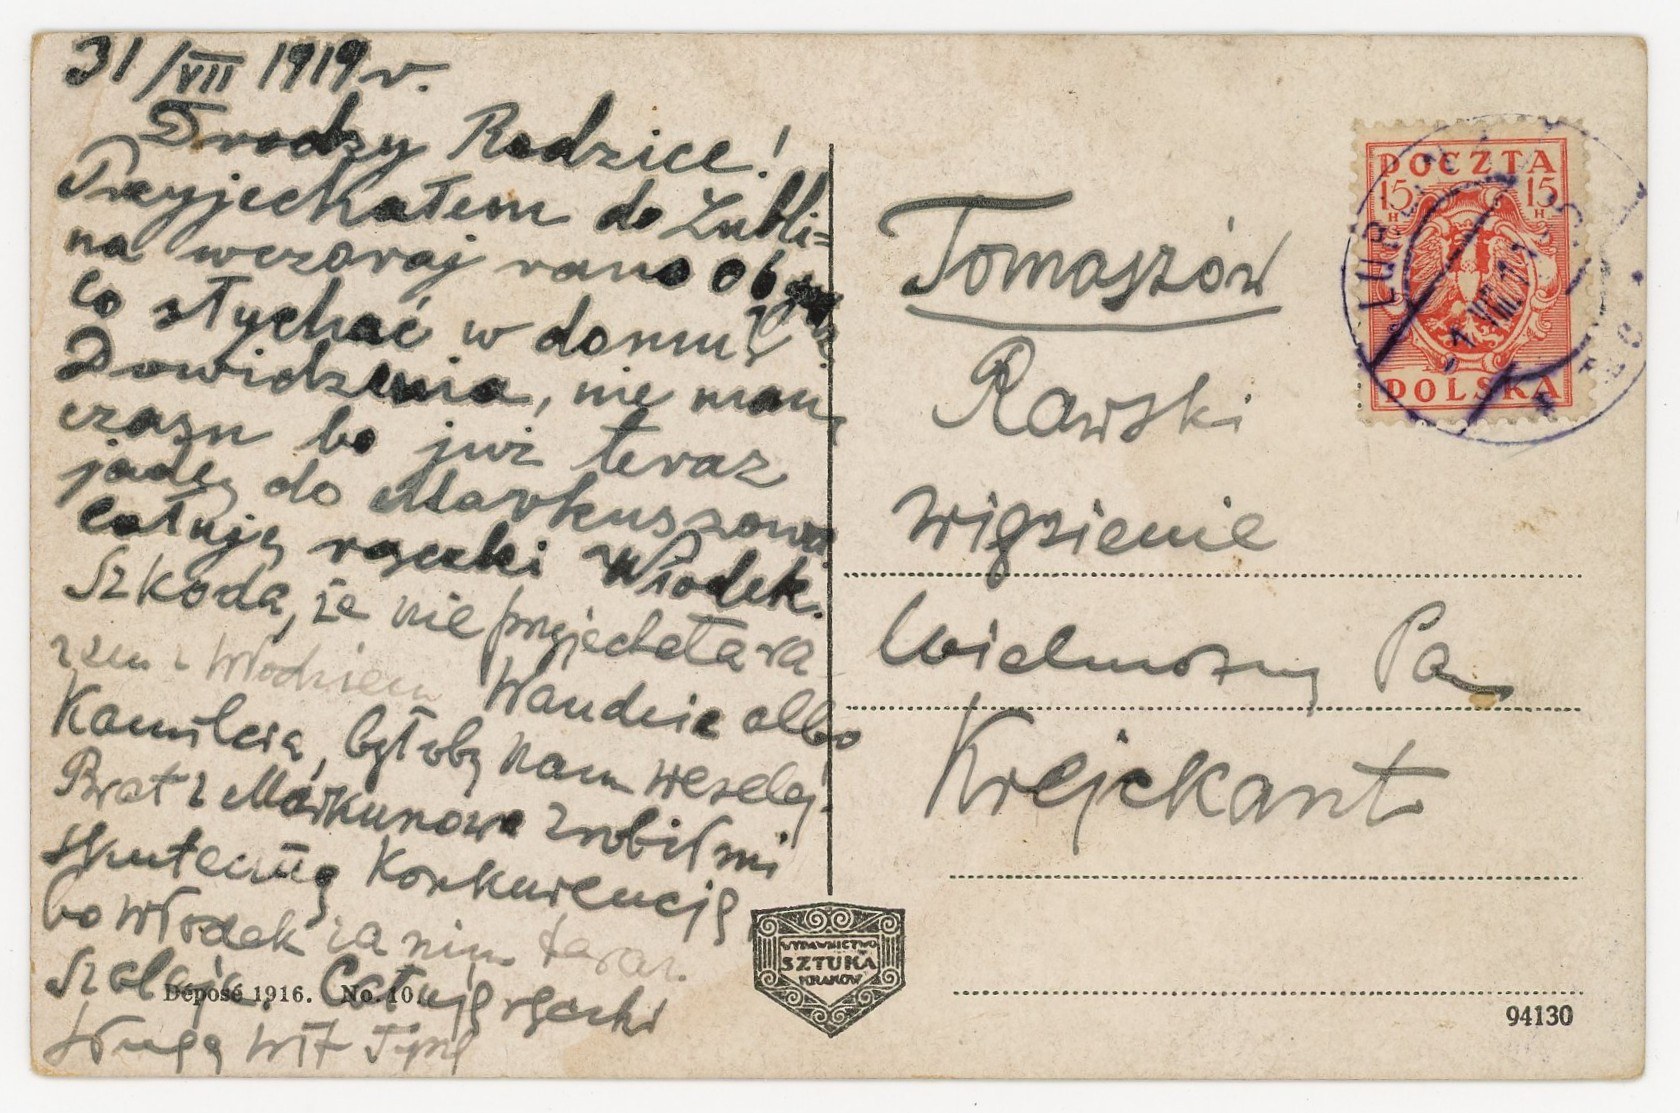 31/VII 1919 r.
Drodzy Rodzice!
Przyjechałem do Lubli=
na wczoraj rano o 6
Co słychać w domu?
Dowidzenia, nie mam
czasu bo już teraz
jadę do Markuszowa
całuję rączki Włodek.
Szkoda, że nie przyjechała ra
zem z Włodziem Wandzie albo
Kamilcia, byłoby nam weselej.
Brat z Markunowa zrobił mi
skuteczną konkurencję
bo Włodek za nim teraz
szaleje. Całuję rączki
sługa
Déposé 1916. No. 10.
Tomaszów
Rawski
więzienie
Wielmożny Pan
Krejckant
POCZTA
15 15
H H
POLSKA
LUB
VIII
WYDAWNICTWO
SZTUKA
KRAKÓW
94130